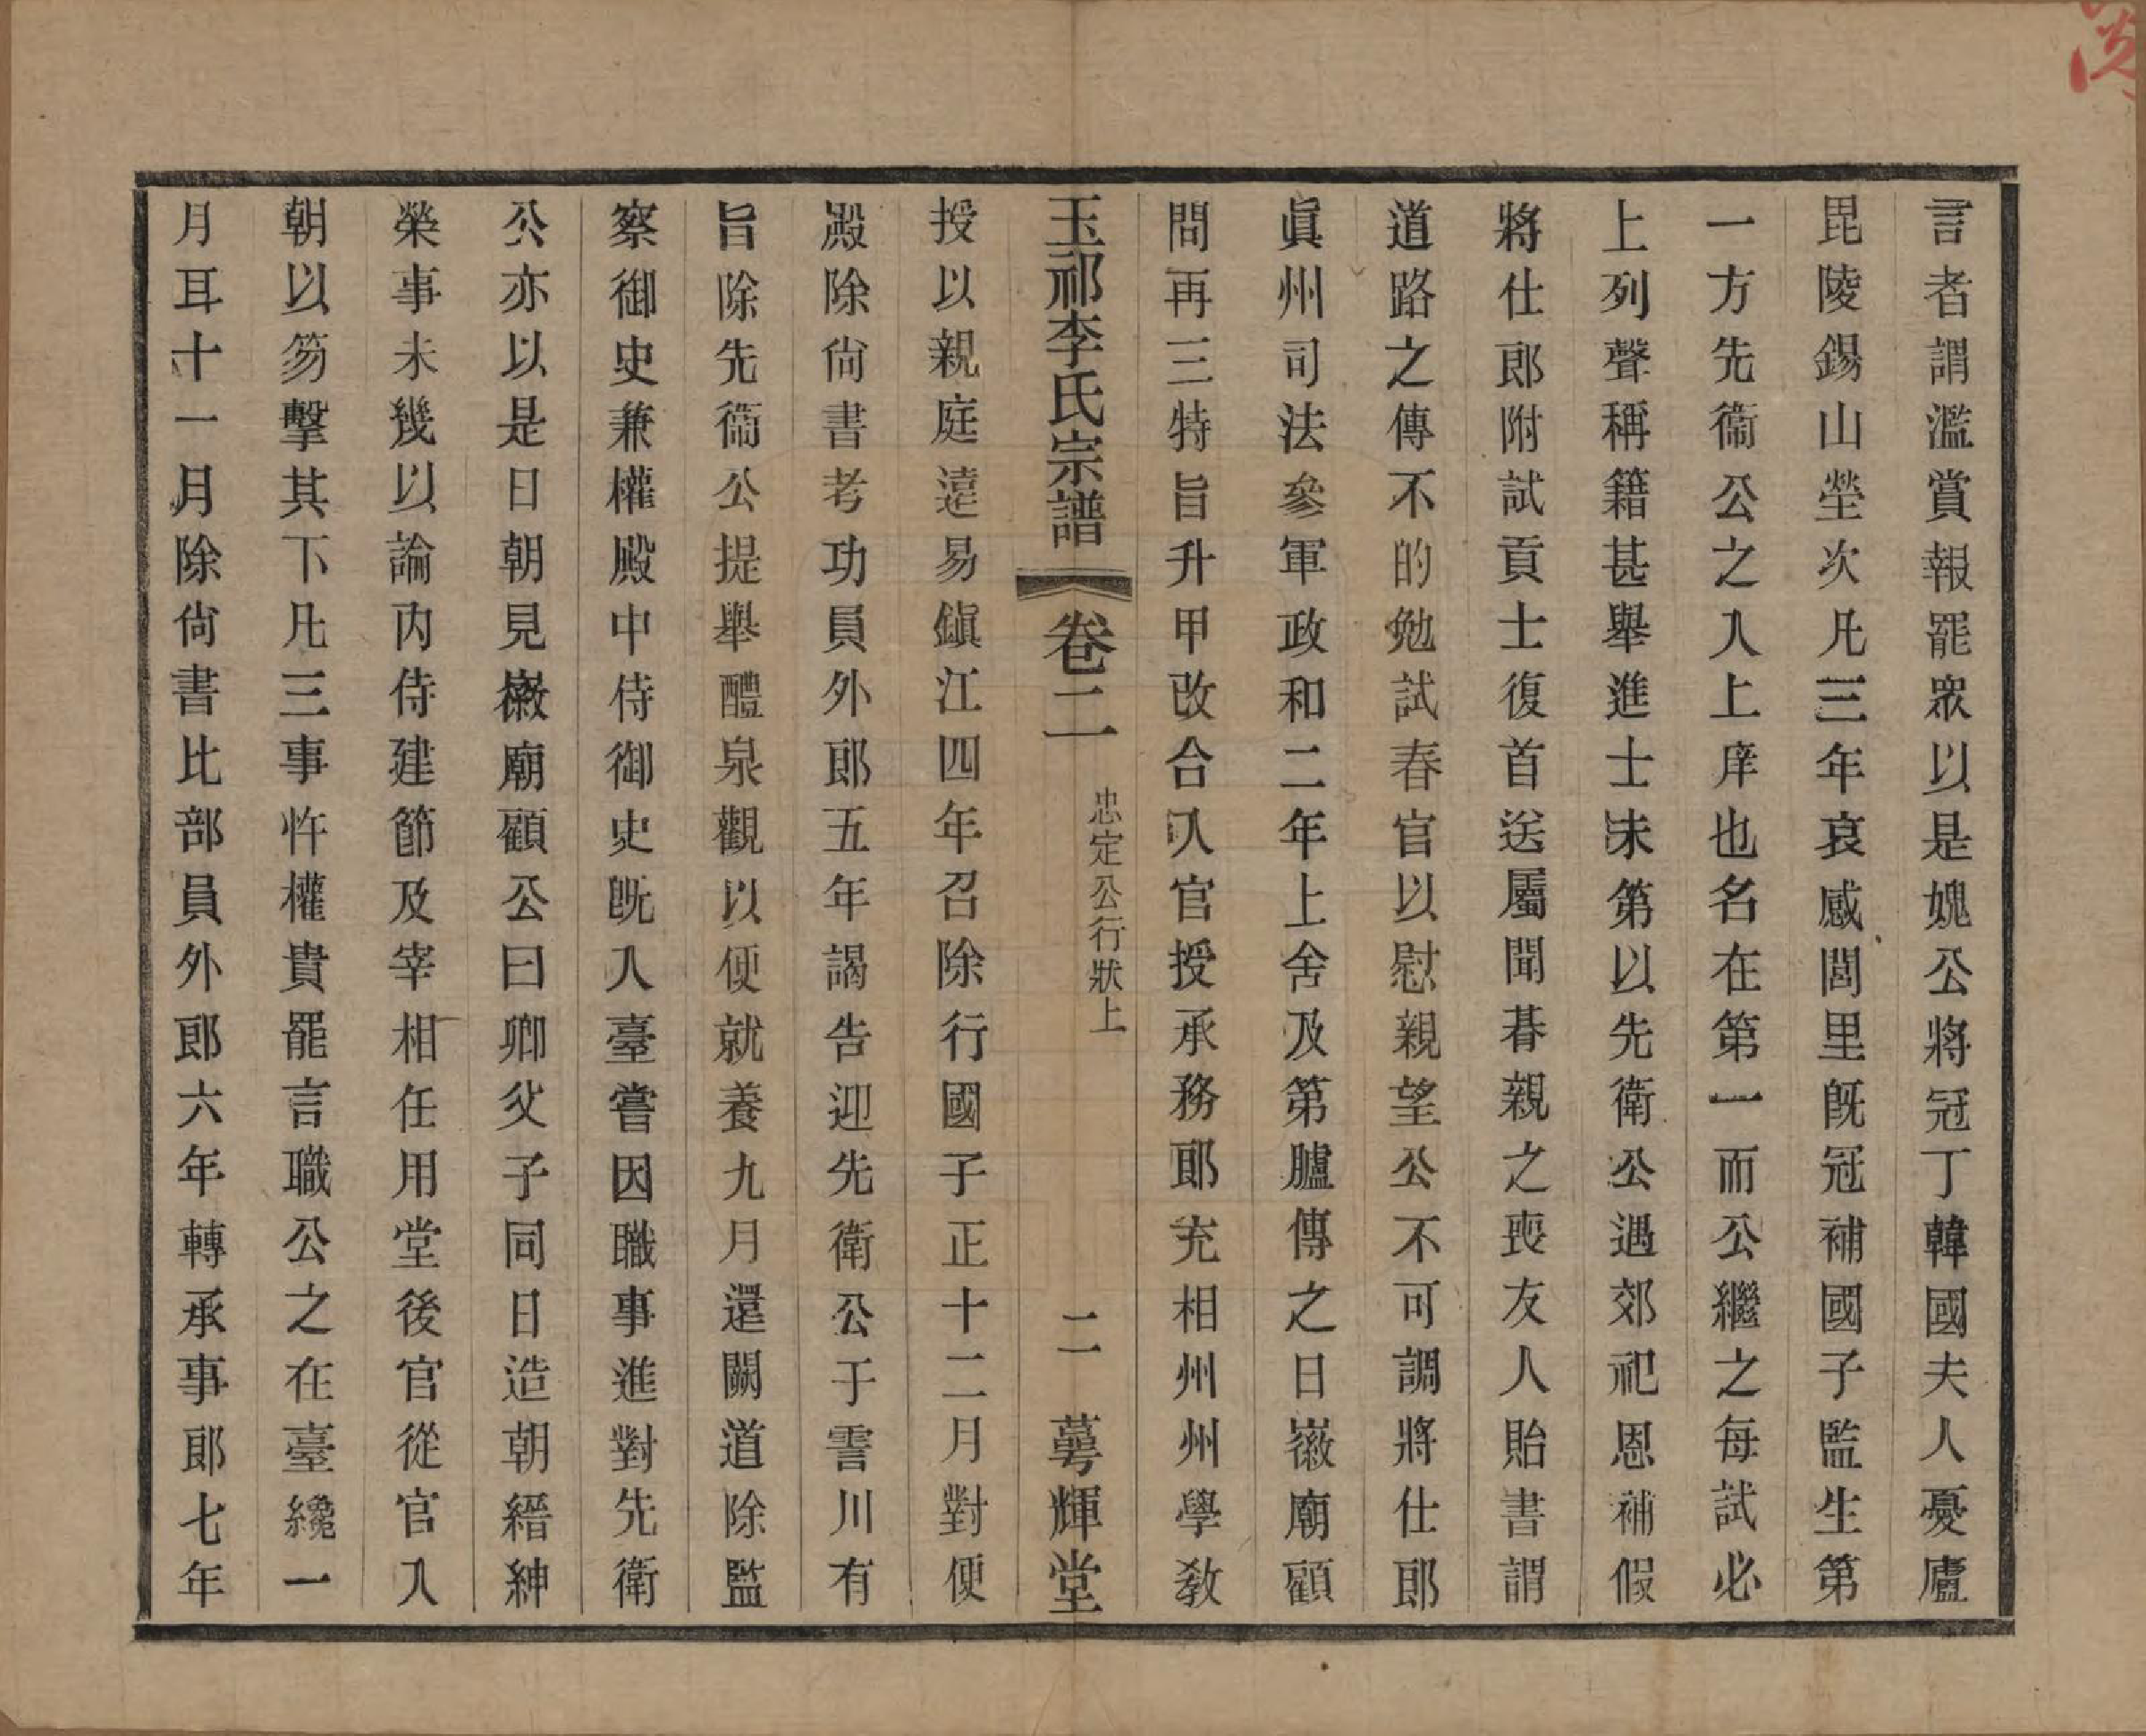 言者謂濫賞報罷衆以是媿公將冠丁韓國夫人憂廬
毘陵錫山塋次凡三年哀感閭里旣冠補國子監生第
一方先衞公之入上庠也名在第一而公繼之每試必
上列聲稱籍甚舉進士未第以先衛公遇郊祀恩補假
將仕郎附試貢士復首送屬聞朞親之喪友人貽書謂
道路之傳不的勉試春官以慰親望公不可調將仕郎
眞州司法參軍政和二年上舍及第臚傳之日徽廟顧
問再三特旨升甲改合入官授承務郎充相州州學敎
玉祁李氏宗譜 卷二 忠定公行狀上 二 蕚輝堂
授以親庭遠易鎭江四年召除行國子正十二月對便
殿除尙書考功員外郎五年謁告迎先衛公于霅川有
旨除先衞公提舉醴泉觀以便就養九月還闕道除監
察御史兼權殿中侍御史旣入臺嘗因職事進對先衛
公亦以是日朝見徽廟顧公曰卿父子同日造朝縉紳
榮事未幾以論内侍建節及宰相任用堂後官從官入
朝以笏擊其下凡三事忤權貴罷言職公之在臺纔一
月耳十一月除尙書比部員外郎六年轉承事郎七年